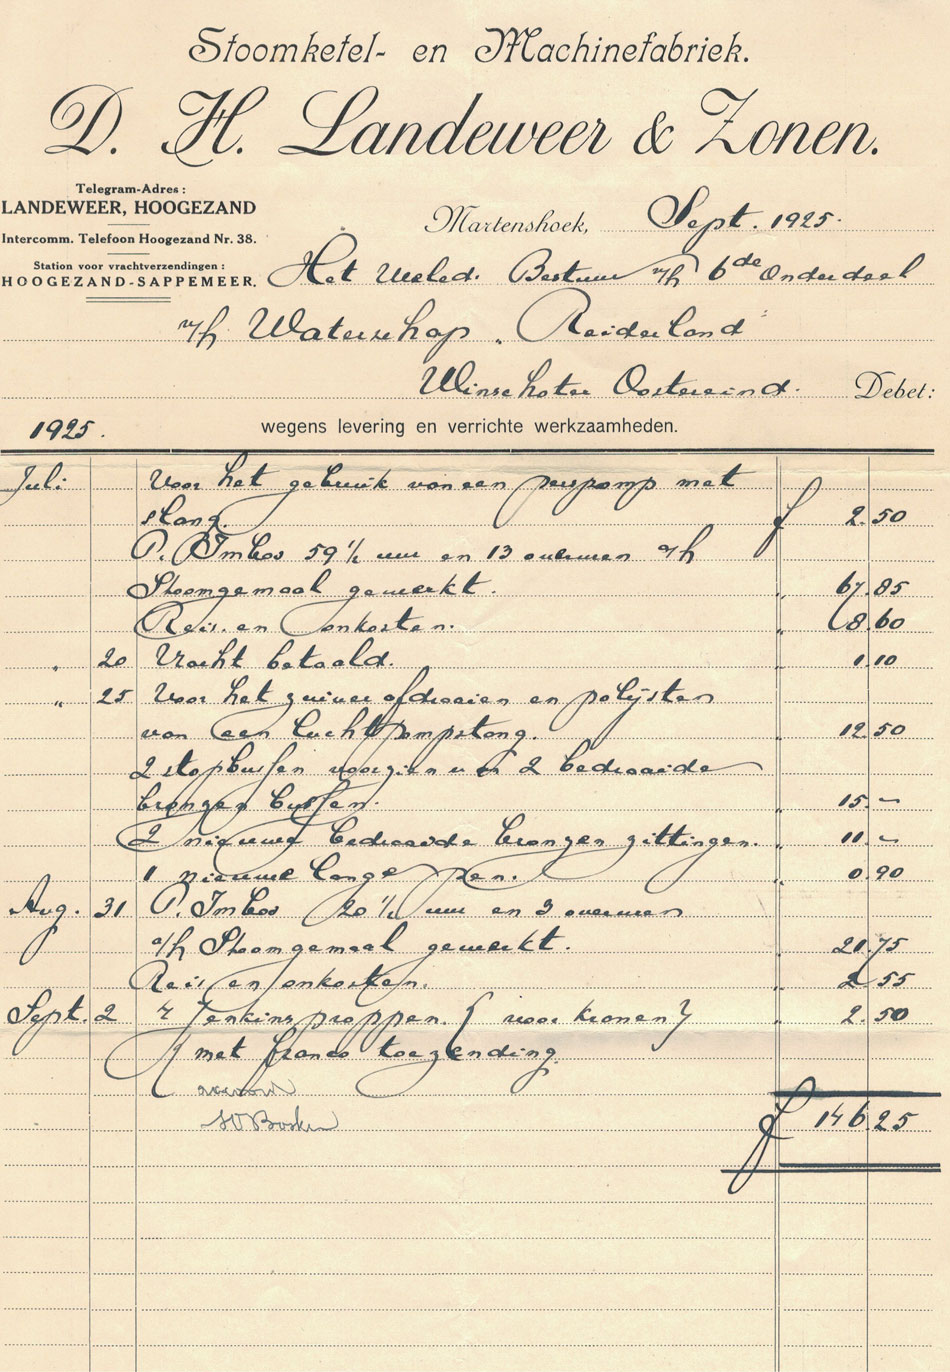 Stoomketel- en Machinefabriek.
D. H. Landeweer & Zonen.
Telegram-Adres:
LANDEWEER, HOOGEZAND
Intercomm. Telefoon Hoogezand Nr. 38.
Station voor vrachtverzendingen:
HOOGEZAND-SAPPEMEER.
Martenshoek, Sept. 1925.
Het Weled. Bestuur v/h 6de Onderdeel
v/h Waterschap "Reiderland"
Winschoter Oostereind. Debet:
1925. wegens levering en verrichte werkzaamheden.
Juli Voor het gebruik van een perspomp met
slang. f 2.50
P. Imbos 59½ uur en 13 overuren a/h
Stoomgemaal gewerkt. " 67.85
Reis. en onkosten. " 8.60
" 20 Vracht betaald. " 1.10
" 25 Voor het zuiver afdraaien en polijsten
van een luchtpompstang. " 12.50
2 stopbussen voorzien van 2 bedraaide
bronzen bussen. " 15.-
2 nieuwe bedraaide bronzen zittingen. " 11.-
1 nieuwe lange pen. " 0.90
Aug. 31 P. Imbos 20½ uur en 3 overuren
a/h Stoomgemaal gewerkt. " 21.75
Reis en onkosten. " 2.55
Sept. 2 Jenkins proppen. { voor kranen } " 2.50
met franco toezending.
accoord
f 146.25